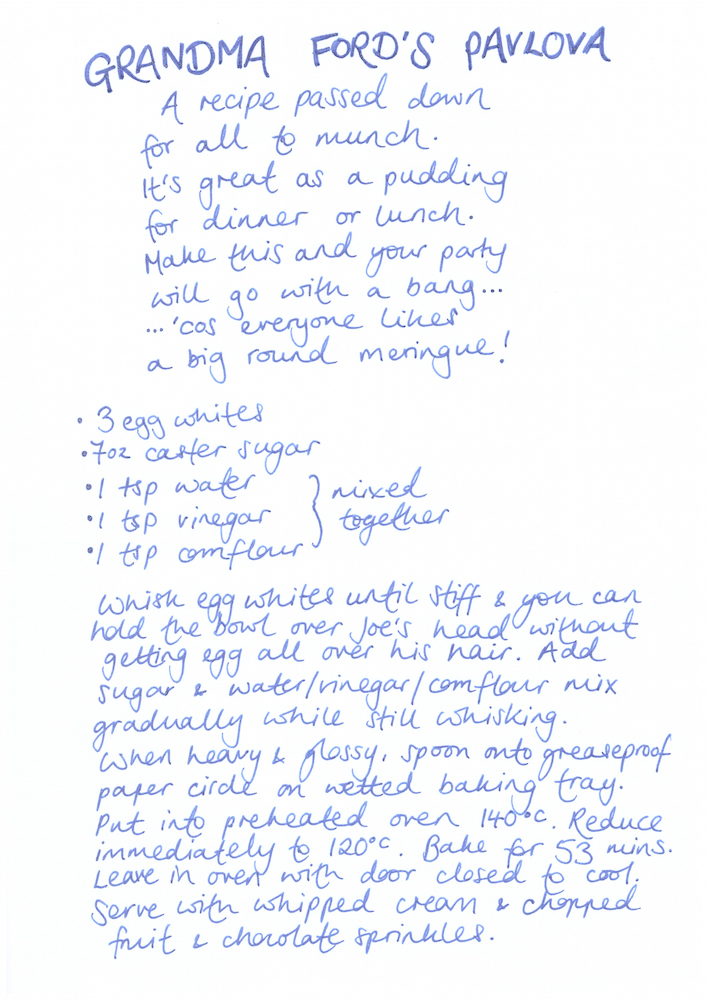 GRANDMA FORD'S PAVLOVA
A recipe passed down
for all to munch.
It's great as a pudding
for dinner or lunch.
Make this and your party
will go with a bang...
...'cos everyone likes
a big round meringue!
• 3 egg whites
• 7oz caster sugar
• 1 tsp water
• 1 tsp vinegar } mixed together
• 1 tsp cornflour
Whisk egg whites until stiff & you can
hold the bowl over Joe's head without
getting egg all over his hair. Add
sugar & water/vinegar/cornflour mix
gradually while still whisking.
When heavy & glossy, spoon onto greaseproof
paper circle on wetted baking tray.
Put into preheated oven 140°C. Reduce
immediately to 120°C. Bake for 53 mins.
Leave in oven with door closed to cool.
Serve with whipped cream & chopped
fruit & chocolate sprinkles.